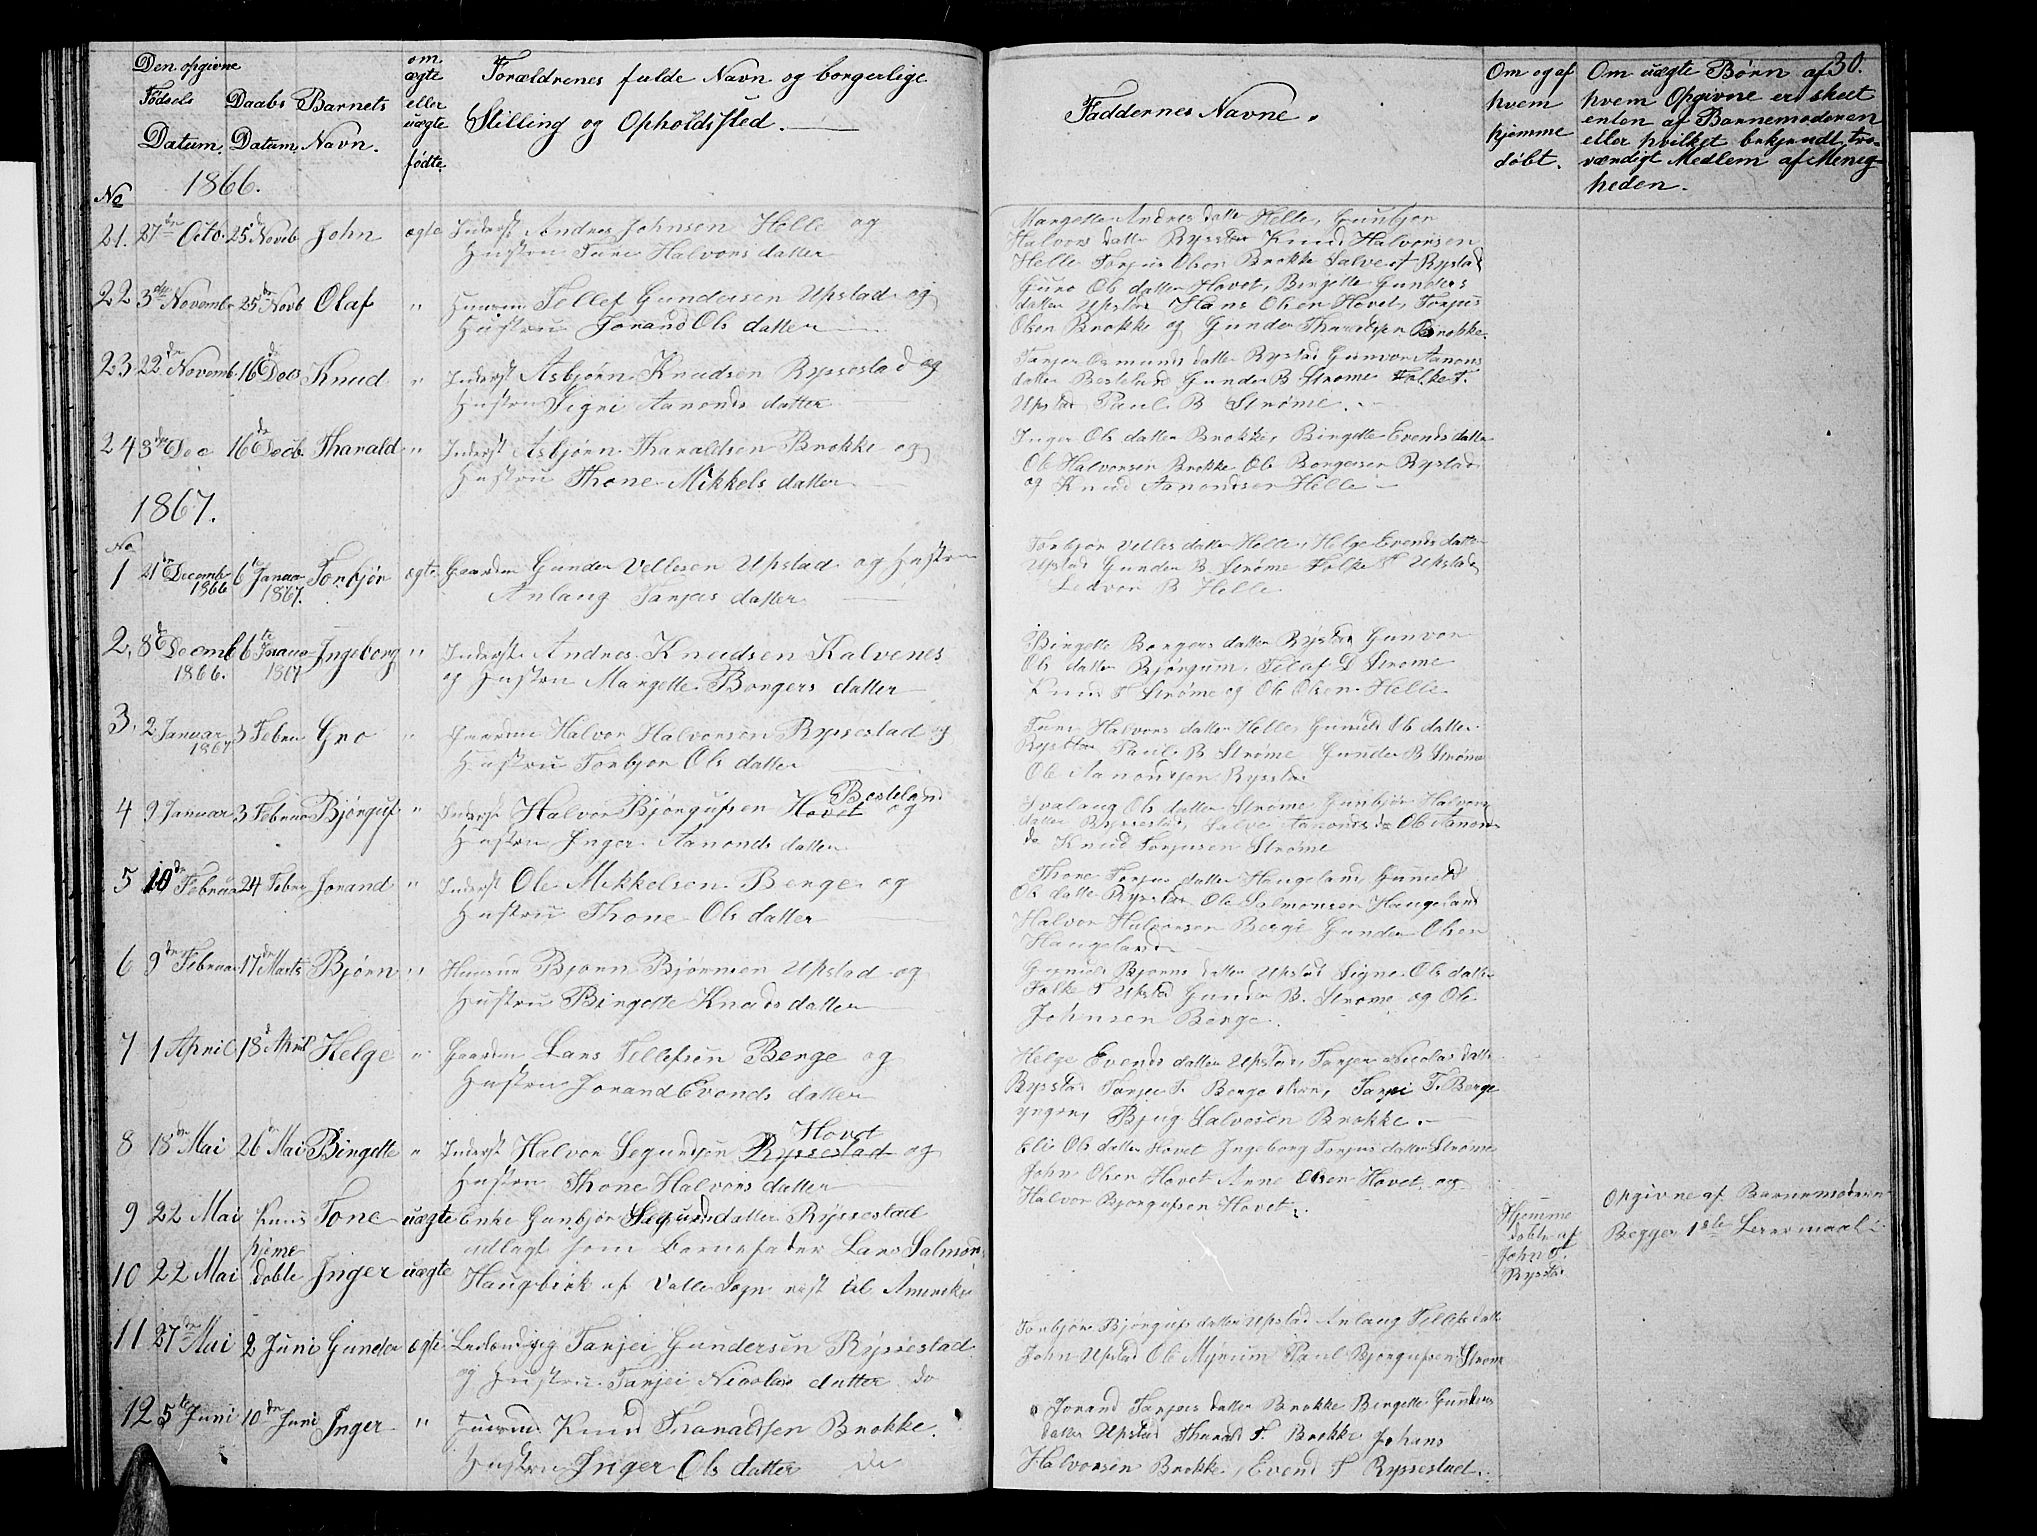 30.
Den opgivne
Fødsels
Datum.
Daabs
Datum.
Barnets
Navn.
om
ægte
eller
uægte
fødte.
Forældrenes fulde Navn og borgerlige
Stilling og Opholdssted.
Faddernes Navne.
Om og af
hvem
hjemme
døbt.
Om uægte Børn af
hvem Opgivne er skeet
enten af Barnemoderen
eller hvilket bekjendt, tro-
værdigt Medlem af Menig-
heden.
No
1866.
21. 27de Octo. 25de Novb John ægte Inderst Andres Johnsen Helle og
Hustru Turi Halvors datter
Margette Andres datter Helle, Gunbjør
Halvors datter Rysstad Knud Halvorsen
Helle Torjus Olsen Brokke Salve A Rystad
22 3die Novembr 25de Novb Olaf " Tellef Gundersen Upstad og
Hustru Jorand Ols datter
Guro Ols datter Hovet, Birgitte Gunders
datter Upstad Hans Olsen Hovet, Torjus
Olsen Brokke og Gunder Tharaldsen Brokke.
23 22de Novemb. 16de Decs Knud " Inderst Asbjørn Knudsen Ryssestad og
Hustru Sigri Aanonds datter
Tarjer Osmunds datter Rystad Gunvor Aanons
datter Besteland Gunder B Strøme Folke T.
Upstad Paul B Strøme.
24 3de Dec 16de Decb. Tharald " Inderst Asbjørn Tharaldsen Brokke og
Hustru Thone Mikkels datter
Inger Ols datter Brokke, Birgette Evends datter
Ole Halvorsen Brokke Ole Borgersen Rystad
og Knud Aanondsen Helle
1867.
No
1 21de Decemb 1866 6te Januar 1867. Torbjør ægte Gaardm Gunder Vellesen Upstad og Hustru
Anlaug Tarjeis datter
Torbjør Velles datter Helle, Helge Evends datter
Upstad Gunder B Strøme Folke T Upstad
Ledvor B Helle
2, 8de Decemb 1866. 6te Janua 1867 Ingeborg " Inderst Andres Knudsen Kalvenes
og Hustru Margette Borgers datter
Birgette Borgers datter Rystad Gunvor
Ols datter Bjørgum, Tellef D Strøme
Knud T Strøme og Ole Olsen Helle
3, 2 Januar 1867 3 Febru Gro " Halvor Halvorsen Ryssestad og
Hustru Torbjør Ols datter
Turi Halvors datter Helle, Gunild Ols datter
Rysstad Paul B Strøme Gunder B Strøme
Ole Aanondsen Rysstad
4 9 Januar 3 Februa Bjørguf " Inderst Halvor Bjørgufsen Hovet Besteland og
Hustru Inger Aanonds datter
Ols datter Strøme Gunbjør Halvors
datter Ryssestad, Salve Aanonds do Ole Aanonds
do Knud Torjusen Strøme
5 10de Februa 24 Febru Jorand " Inderst Ole Mikkelsen Berge og
Hustru Thone Ols datter
Thone Torjus datter Haugeland Gunild
Ols datter Rysstad Ole Salmonsen Haugeland
Halvor Halvorsen Berge Gunder Olsen
Haugeland
6 9de Februar 17de Marts Bjørn " Huusm Bjørn Bjørnsen Upstad og
Hustru Birgette Knuds datter
Bjørns datter Upstad Signe Ols datter
Folke T Upstad Gunder B. Strøme og Ole
Johnsen Berge.
7 1 April 18d April Helge " Gaardm Lars Tellefsen Berge og
Hustru Jorand Evends datter
Helge Evends datter Upstad, Tarjer Nicolas datter
Rysstad Tarjei T. Berge den, Tarjei T. Berge
yngre, Bjug Salvesen Brokke.
8 18de Mai 26de Mai Birgette " Inderst Halvor Segundsen Ryssestad Hovet og
Hustru Thone Halvors datter
Eli Ols datter Hovet Ingeborg Torjus datter Strøme
John Olsen Hovet Anne Olsen Hovet, og
Halvor Bjørgufsen Hovet.
9 22 Mai kuns Tone uægte Enke Gunbjør Segunsdatter Ryssestad
udlagt som Barnefader Lars Salmon
10 22 Mai hjeme døbte Inger uægte Haugbirk af Valle Sogn rejst til Amerika
Hjemme
døbte af
John O.
Rysstad
Opgivne af Barnemoderen
Begge 1ste Leiermaal
11 27de Mai 2 Juni Gunder ægte Tarjei Gundersen Ryssestad
og Hustru Tarjei Nicolas datter do
Torbjør Bjørgufs datter Upstad Anlaug Tellefs datter
John Upstad Ole Myrum Paul Bjørgufsen Strøm
12 5te Juni 10de Juni Inger " Knud Tharaldsen Brokke.
Hustru Inger Ols datter do
Jorand Tarjeis datter Brokke Birgette Gunders
datter Upstad Tharald T. Brokke Johans
Halvorsen Brokke, Evend T Ryssestad.